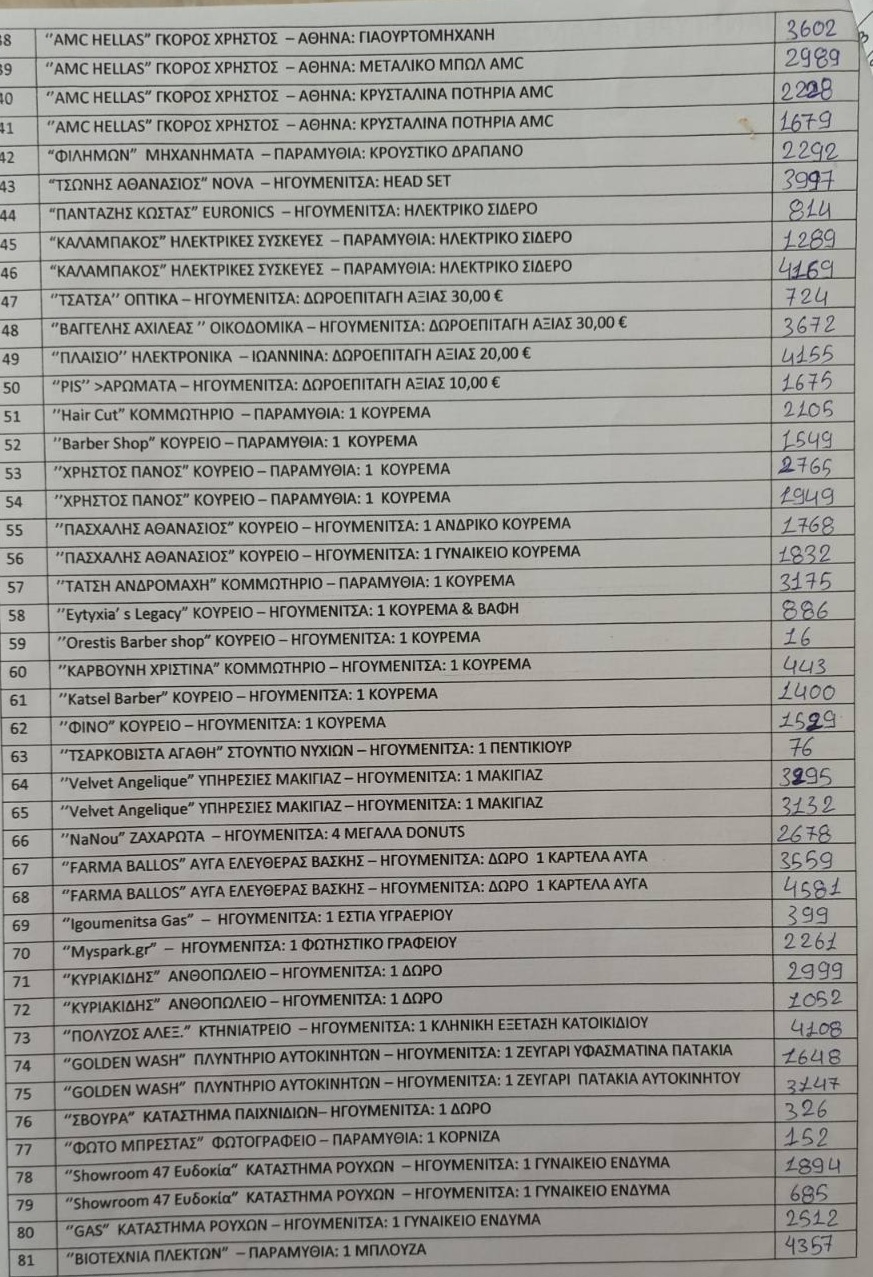 38 "AMC HELLAS" ΓΚΟΡΟΣ ΧΡΗΣΤΟΣ – ΑΘΗΝΑ: ΓΙΑΟΥΡΤΟΜΗΧΑΝΗ 3602
39 "AMC HELLAS" ΓΚΟΡΟΣ ΧΡΗΣΤΟΣ – ΑΘΗΝΑ: ΜΕΤΑΛΙΚΟ ΜΠΩΛ AMC 2989
40 "AMC HELLAS" ΓΚΟΡΟΣ ΧΡΗΣΤΟΣ – ΑΘΗΝΑ: ΚΡΥΣΤΑΛΙΝΑ ΠΟΤΗΡΙΑ AMC 2228
41 "AMC HELLAS" ΓΚΟΡΟΣ ΧΡΗΣΤΟΣ – ΑΘΗΝΑ: ΚΡΥΣΤΑΛΙΝΑ ΠΟΤΗΡΙΑ AMC 1679
42 "ΦΙΛΗΜΩΝ" ΜΗΧΑΝΗΜΑΤΑ – ΠΑΡΑΜΥΘΙΑ: ΚΡΟΥΣΤΙΚΟ ΔΡΑΠΑΝΟ 2292
43 "ΤΣΩΝΗΣ ΑΘΑΝΑΣΙΟΣ" NOVA – ΗΓΟΥΜΕΝΙΤΣΑ: HEAD SET 3997
44 "ΠΑΝΤΑΖΗΣ ΚΩΣΤΑΣ" EURONICS – ΗΓΟΥΜΕΝΙΤΣΑ: ΗΛΕΚΤΡΙΚΟ ΣΙΔΕΡΟ 814
45 "ΚΑΛΑΜΠΑΚΟΣ" ΗΛΕΚΤΡΙΚΕΣ ΣΥΣΚΕΥΕΣ – ΠΑΡΑΜΥΘΙΑ: ΗΛΕΚΤΡΙΚΟ ΣΙΔΕΡΟ 1289
46 "ΚΑΛΑΜΠΑΚΟΣ" ΗΛΕΚΤΡΙΚΕΣ ΣΥΣΚΕΥΕΣ – ΠΑΡΑΜΥΘΙΑ: ΗΛΕΚΤΡΙΚΟ ΣΙΔΕΡΟ 4169
47 "ΤΣΑΤΣΑ" ΟΠΤΙΚΑ – ΗΓΟΥΜΕΝΙΤΣΑ: ΔΩΡΟΕΠΙΤΑΓΗ ΑΞΙΑΣ 30,00 € 724
48 "ΒΑΓΓΕΛΗΣ ΑΧΙΛΕΑΣ " ΟΙΚΟΔΟΜΙΚΑ – ΗΓΟΥΜΕΝΙΤΣΑ: ΔΩΡΟΕΠΙΤΑΓΗ ΑΞΙΑΣ 30,00 € 3672
49 "ΠΛΑΙΣΙΟ" ΗΛΕΚΤΡΟΝΙΚΑ – ΙΩΑΝΝΙΝΑ: ΔΩΡΟΕΠΙΤΑΓΗ ΑΞΙΑΣ 20,00 € 4155
50 "PIS" >ΑΡΩΜΑΤΑ – ΗΓΟΥΜΕΝΙΤΣΑ: ΔΩΡΟΕΠΙΤΑΓΗ ΑΞΙΑΣ 10,00 € 1675
51 "Hair Cut" ΚΟΜΜΩΤΗΡΙΟ – ΠΑΡΑΜΥΘΙΑ: 1 ΚΟΥΡΕΜΑ 2105
52 "Barber Shop" ΚΟΥΡΕΙΟ – ΠΑΡΑΜΥΘΙΑ: 1 ΚΟΥΡΕΜΑ 1549
53 "ΧΡΗΣΤΟΣ ΠΑΝΟΣ" ΚΟΥΡΕΙΟ – ΠΑΡΑΜΥΘΙΑ: 1 ΚΟΥΡΕΜΑ 2765
54 "ΧΡΗΣΤΟΣ ΠΑΝΟΣ" ΚΟΥΡΕΙΟ – ΠΑΡΑΜΥΘΙΑ: 1 ΚΟΥΡΕΜΑ 1949
55 "ΠΑΣΧΑΛΗΣ ΑΘΑΝΑΣΙΟΣ" ΚΟΥΡΕΙΟ – ΗΓΟΥΜΕΝΙΤΣΑ: 1 ΑΝΔΡΙΚΟ ΚΟΥΡΕΜΑ 1768
56 "ΠΑΣΧΑΛΗΣ ΑΘΑΝΑΣΙΟΣ" ΚΟΥΡΕΙΟ – ΗΓΟΥΜΕΝΙΤΣΑ: 1 ΓΥΝΑΙΚΕΙΟ ΚΟΥΡΕΜΑ 1832
57 "ΤΑΤΣΗ ΑΝΔΡΟΜΑΧΗ" ΚΟΜΜΩΤΗΡΙΟ – ΠΑΡΑΜΥΘΙΑ: 1 ΚΟΥΡΕΜΑ 3175
58 "Eytyxia's Legacy" ΚΟΥΡΕΙΟ – ΗΓΟΥΜΕΝΙΤΣΑ: 1 ΚΟΥΡΕΜΑ & ΒΑΦΗ 886
59 "Orestis Barber shop" ΚΟΥΡΕΙΟ – ΗΓΟΥΜΕΝΙΤΣΑ: 1 ΚΟΥΡΕΜΑ 16
60 "ΚΑΡΒΟΥΝΗ ΧΡΙΣΤΙΝΑ" ΚΟΜΜΩΤΗΡΙΟ – ΗΓΟΥΜΕΝΙΤΣΑ: 1 ΚΟΥΡΕΜΑ 443
61 "Katsel Barber" ΚΟΥΡΕΙΟ – ΗΓΟΥΜΕΝΙΤΣΑ: 1 ΚΟΥΡΕΜΑ 1400
62 "ΦΙΝΟ" ΚΟΥΡΕΙΟ – ΗΓΟΥΜΕΝΙΤΣΑ: 1 ΚΟΥΡΕΜΑ 1529
63 "ΤΣΑΡΚΟΒΙΣΤΑ ΑΓΑΘΗ" ΣΤΟΥΝΤΙΟ ΝΥΧΙΩΝ – ΗΓΟΥΜΕΝΙΤΣΑ: 1 ΠΕΝΤΙΚΙΟΥΡ 76
64 "Velvet Angelique" ΥΠΗΡΕΣΙΕΣ ΜΑΚΙΓΙΑΖ – ΗΓΟΥΜΕΝΙΤΣΑ: 1 ΜΑΚΙΓΙΑΖ 3295
65 "Velvet Angelique" ΥΠΗΡΕΣΙΕΣ ΜΑΚΙΓΙΑΖ – ΗΓΟΥΜΕΝΙΤΣΑ: 1 ΜΑΚΙΓΙΑΖ 3132
66 "NaNou" ΖΑΧΑΡΩΤΑ – ΗΓΟΥΜΕΝΙΤΣΑ: 4 ΜΕΓΑΛΑ DONUTS 2678
67 "FARMA BALLOS" ΑΥΓΑ ΕΛΕΥΘΕΡΑΣ ΒΑΣΚΗΣ – ΗΓΟΥΜΕΝΙΤΣΑ: ΔΩΡΟ 1 ΚΑΡΤΕΛΑ ΑΥΓΑ 3559
68 "FARMA BALLOS" ΑΥΓΑ ΕΛΕΥΘΕΡΑΣ ΒΑΣΚΗΣ – ΗΓΟΥΜΕΝΙΤΣΑ: ΔΩΡΟ 1 ΚΑΡΤΕΛΑ ΑΥΓΑ 4581
69 "Igoumenitsa Gas" – ΗΓΟΥΜΕΝΙΤΣΑ: 1 ΕΣΤΙΑ ΥΓΡΑΕΡΙΟΥ 399
70 "Myspark.gr" – ΗΓΟΥΜΕΝΙΤΣΑ: 1 ΦΩΤΗΣΤΙΚΟ ΓΡΑΦΕΙΟΥ 2261
71 "ΚΥΡΙΑΚΙΔΗΣ" ΑΝΘΟΠΩΛΕΙΟ – ΗΓΟΥΜΕΝΙΤΣΑ: 1 ΔΩΡΟ 2999
72 "ΚΥΡΙΑΚΙΔΗΣ" ΑΝΘΟΠΩΛΕΙΟ – ΗΓΟΥΜΕΝΙΤΣΑ: 1 ΔΩΡΟ 1052
73 "ΠΟΛΥΖΟΣ ΑΛΕΞ." ΚΤΗΝΙΑΤΡΕΙΟ – ΗΓΟΥΜΕΝΙΤΣΑ: 1 ΚΛΗΝΙΚΗ ΕΞΕΤΑΣΗ ΚΑΤΟΙΚΙΔΙΟΥ 4108
74 "GOLDEN WASH" ΠΛΥΝΤΗΡΙΟ ΑΥΤΟΚΙΝΗΤΩΝ – ΗΓΟΥΜΕΝΙΤΣΑ: 1 ΖΕΥΓΑΡΙ ΥΦΑΣΜΑΤΙΝΑ ΠΑΤΑΚΙΑ 1648
75 "GOLDEN WASH" ΠΛΥΝΤΗΡΙΟ ΑΥΤΟΚΙΝΗΤΩΝ – ΗΓΟΥΜΕΝΙΤΣΑ: 1 ΖΕΥΓΑΡΙ ΠΑΤΑΚΙΑ ΑΥΤΟΚΙΝΗΤΟΥ 3147
76 "ΣΒΟΥΡΑ" ΚΑΤΑΣΤΗΜΑ ΠΑΙΧΝΙΔΙΩΝ– ΗΓΟΥΜΕΝΙΤΣΑ: 1 ΔΩΡΟ 326
77 "ΦΩΤΟ ΜΠΡΕΣΤΑΣ" ΦΩΤΟΓΡΑΦΕΙΟ – ΠΑΡΑΜΥΘΙΑ: 1 ΚΟΡΝΙΖΑ 152
78 "Showroom 47 Ευδοκία" ΚΑΤΑΣΤΗΜΑ ΡΟΥΧΩΝ – ΗΓΟΥΜΕΝΙΤΣΑ: 1 ΓΥΝΑΙΚΕΙΟ ΕΝΔΥΜΑ 1894
79 "Showroom 47 Ευδοκία" ΚΑΤΑΣΤΗΜΑ ΡΟΥΧΩΝ – ΗΓΟΥΜΕΝΙΤΣΑ: 1 ΓΥΝΑΙΚΕΙΟ ΕΝΔΥΜΑ 685
80 "GAS" ΚΑΤΑΣΤΗΜΑ ΡΟΥΧΩΝ – ΗΓΟΥΜΕΝΙΤΣΑ: 1 ΓΥΝΑΙΚΕΙΟ ΕΝΔΥΜΑ 2512
81 "ΒΙΟΤΕΧΝΙΑ ΠΛΕΚΤΩΝ" – ΠΑΡΑΜΥΘΙΑ: 1 ΜΠΛΟΥΖΑ 4357